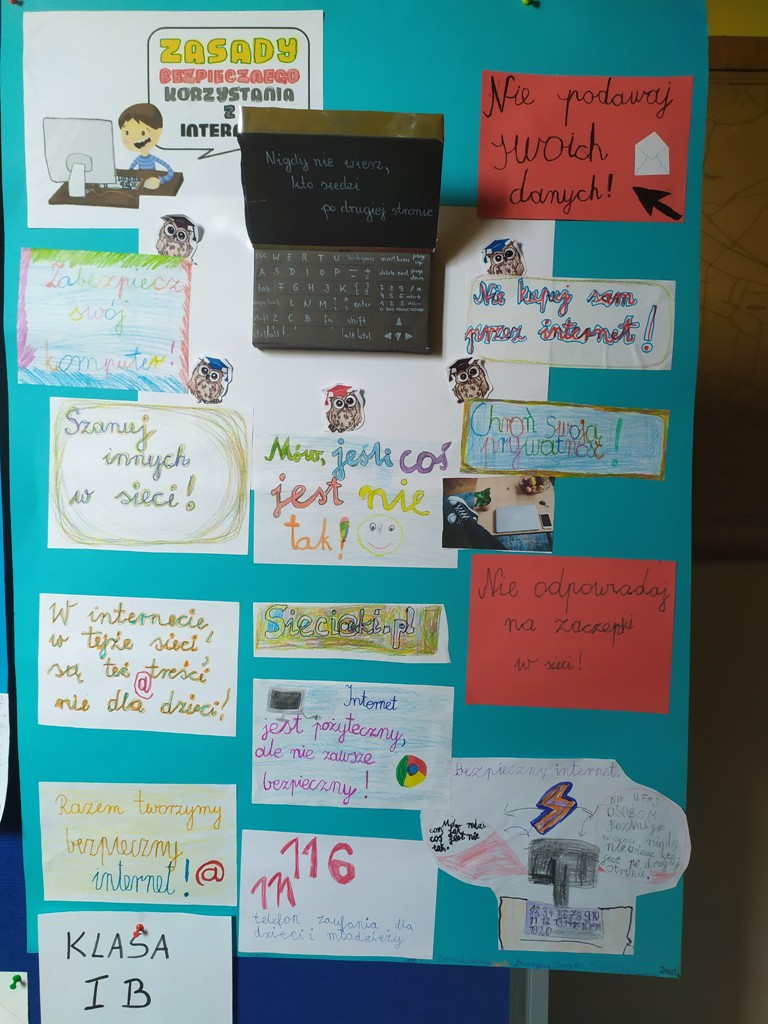 ZASADY
BEZPIECZNEGO
KORZYSTANIA
Z
INTER
Nigdy nie wiesz,
kto siedzi
po drugiej stronie
Nie podawaj
swoich
danych!
Zabezpiecz
swój
komputer!
Nie kupuj sam
przez internet!
Szanuj
innych
w sieci!
Mów, jeśli coś
jest nie
tak!
Chroń swoją
prywatność!
W internecie
w tejże sieci
są też treści
@
nie dla dzieci!
Sieciaki.pl
Nie odpowiadaj
na zaczepki
w sieci!
Internet
jest pożyteczny,
ale nie zawsze
bezpieczny!
Razem tworzymy
bezpieczny
internet! @
116
111
telefon zaufania dla
dzieci i młodzieży
Bezpieczny internet.
NIE UFAJ
OSOBOM
POZNANYM
KLASA
I B